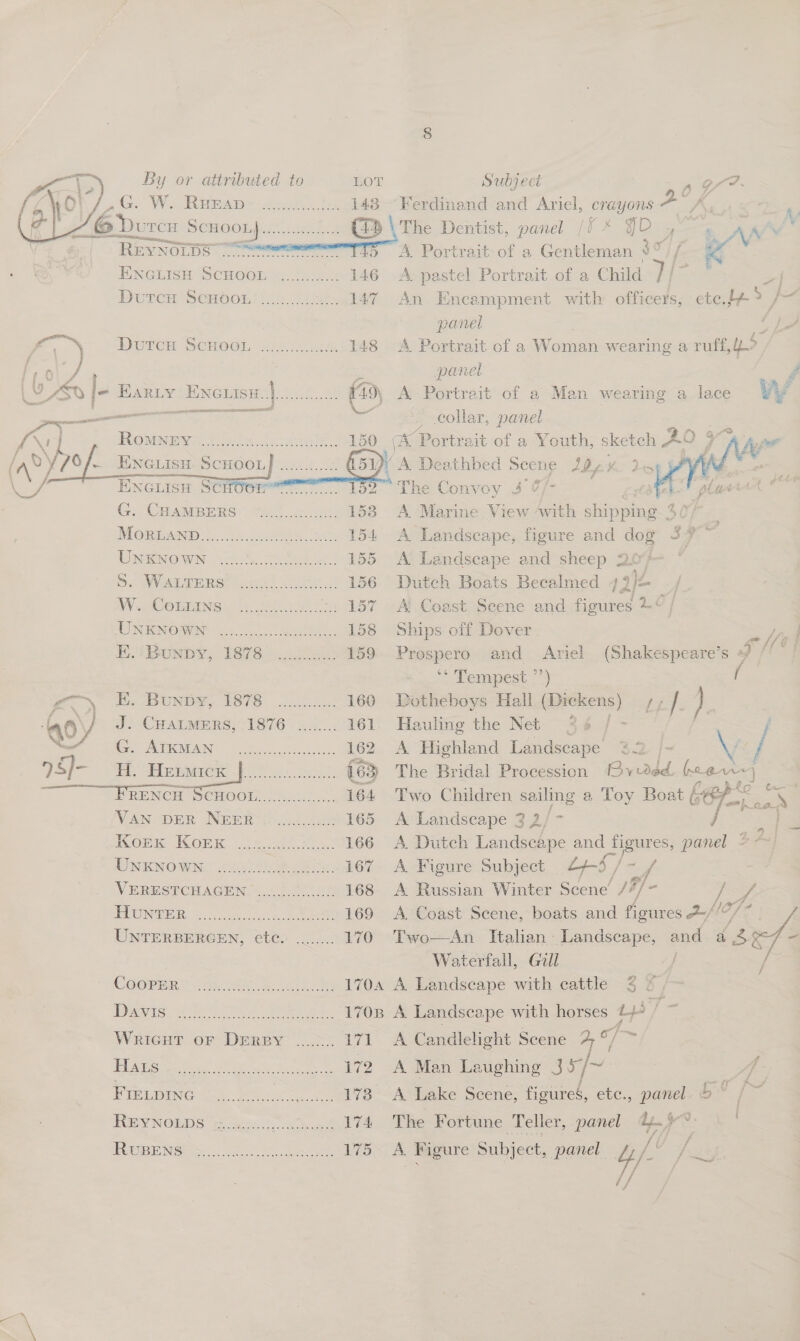 8
By or attributed to LOT Subject
G. W. RHEAD ............ 143 Ferdinand and Ariel, crayons
DUTCH SCHOOL ............ The Dentist, panel
REYNOLDS ............ 145 A Portrait of a Gentleman
ENGLISH SCHOOL ............ 146 A pastel Portrait of a Child
DUTCH SCHOOL ............ 147 An Encampment with officers, etc.
panel
DUTCH SCHOOL ............ 148 A Portrait of a Woman wearing a ruff,
panel
EARLY ENGLISH ............ 149 A Portrait of a Man wearing a lace
collar, panel
ROMNEY ............ 150 A Portrait of a Youth, sketch
ENGLISH SCHOOL ............ 151 A Deathbed Scene
ENGLISH SCHOOL ............ 152 The Convoy
G. CHAMBERS ............ 153 A Marine View with shipping
MORLAND ............ 154 A Landscape, figure and dog
UNKNOWN ............ 155 A Landscape and sheep
S. WALTERS ............ 156 Dutch Boats Becalmed
W. COLLINS ............ 157 A Coast Scene and figures
UNKNOWN ............ 158 Ships off Dover
E. BUNDY, 1878 ............ 159 Prospero and Ariel (Shakespeare's
“Tempest”)
E. BUNDY, 1878 ............ 160 Dotheboys Hall (Dickens)
J. CHALMERS, 1876 ........ 161 Hauling the Net
G. AIKMAN ............ 162 A Highland Landscape
25/- H. HELMICK ............ 163 The Bridal Procession
FRENCH SCHOOL ............ 164 Two Children sailing a Toy Boat
VAN DER NEER ............ 165 A Landscape 32/-
KOEK KOEK ............ 166 A Dutch Landscape and figures, panel
UNKNOWN ............ 167 A Figure Subject
VERESTCHAGEN ............ 168 A Russian Winter Scene
HUNTER ............ 169 A Coast Scene, boats and figures
UNTERBERGEN, etc. ........ 170 Two—An Italian Landscape, and a
Waterfall, Gill
COOPER ............ 170A A Landscape with cattle
DAVIS ............ 170B A Landscape with horses
WRIGHT OF DERBY ........ 171 A Candlelight Scene
HALS ............ 172 A Man Laughing 35/-
FIELDING ............ 173 A Lake Scene, figures, etc., panel
REYNOLDS ............ 174 The Fortune Teller, panel
RUBENS ............ 175 A Figure Subject, panel